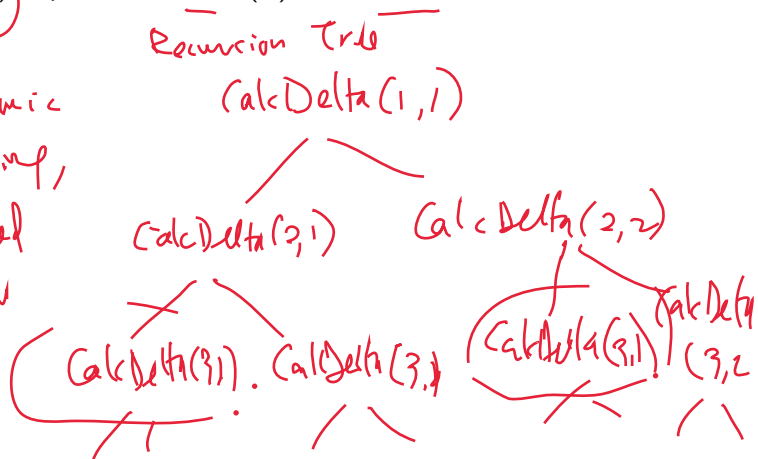 Recursion Tree
CalcDelta(1,1)
CalcDelta(2,1) CalcDelta(2,2)
CalcDelta(3,1) CalcDelta(3, CalcDelta(3,1) CalcDelta
(3,2